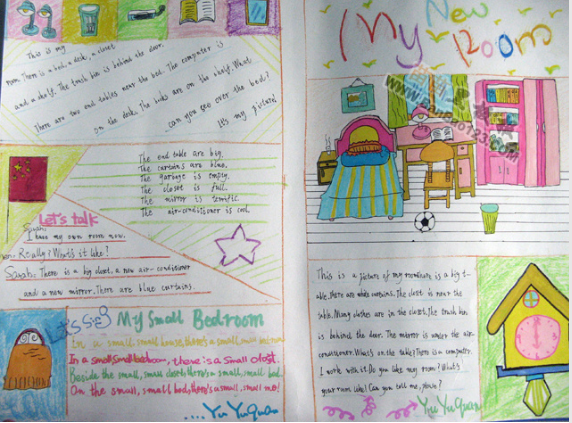 This is my
room. There is a bed, a desk, a closet
and a shelf. The trash bin is behind the door.
There are two end tables near the bed. The computer is
on the desk. The books are on the shelf. What
can you see over the bed?
It's my picture!
The end table are big.
The curtains are blue.
The garbage is empty.
The closet is full.
The mirror is terrific.
The air-conditioner is cool.
Let's talk
Sarah:
I have my own room now.
Really? What's it like?
Sarah: There is a big closet, a new air-conditioner
and a new mirror. There are blue curtains.
My Small Bedroom
In a small, small house, there's a small,
In a small, small bedroom, there is a small closet.
Beside the small, small closet, there's a small, small bed.
On the small, small bed, there's a small, small me!
....Yu YuQuan
My New Room
This is a picture of my room. there is a big
table. there are white curtains. The closet is near the
table. Many clothes are in the closet. The trash bin
is behind the door. The mirror is under the air-
conditioner. What's on the table? There is a computer.
I work with it. Do you like my room? What's
your room like? Can you tell me, please?
Yu YuQuan